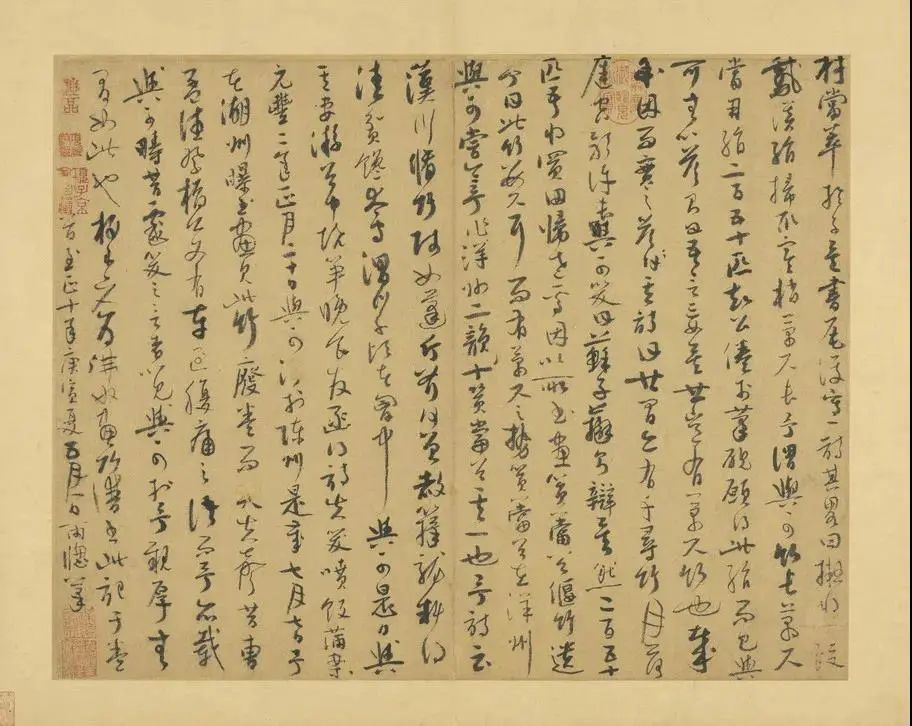 材當萃於子矣書尾復寫一詩其略曰擬將一段
鵝溪絹掃取寒梢萬尺長予謂與可竹長萬尺
當用絹二百五十匹知公倦於筆硯願得此絹而已與
可無以答則曰吾言妄矣世豈有萬尺竹也哉
余因而實之答其詩曰世間亦有千尋竹月落
庭空影許長與可笑曰蘇子辯則辯矣然二百五十
匹吾將買田歸老焉因以所書畫篔簹谷偃竹遺
予曰此竹數尺耳而有萬尺之勢篔簹谷在洋州
與可嘗令予作洋州二韻十篔簹谷其一也予詩云
漢川脩竹賤如蓬斤斧何曾赦籜龍料得
清貧饞太守渭川千畝在胸中與可是日與
其妻游谷中燒筍晚食發函得詩失笑噴飯滿案
元豐二年正月二十日與可沒於陳州是歲七月七日予
在湖州曝書畫見此竹廢卷而哭失聲昔曹
孟德祭橋公文有車過腹痛之語而予亦載
與可疇昔戲笑之言者以見與可於予親厚無
間如此也梅道人爲佛奴畫竹譜書此記于卷
首至正十年庚寅夏五月八日雨牕筆